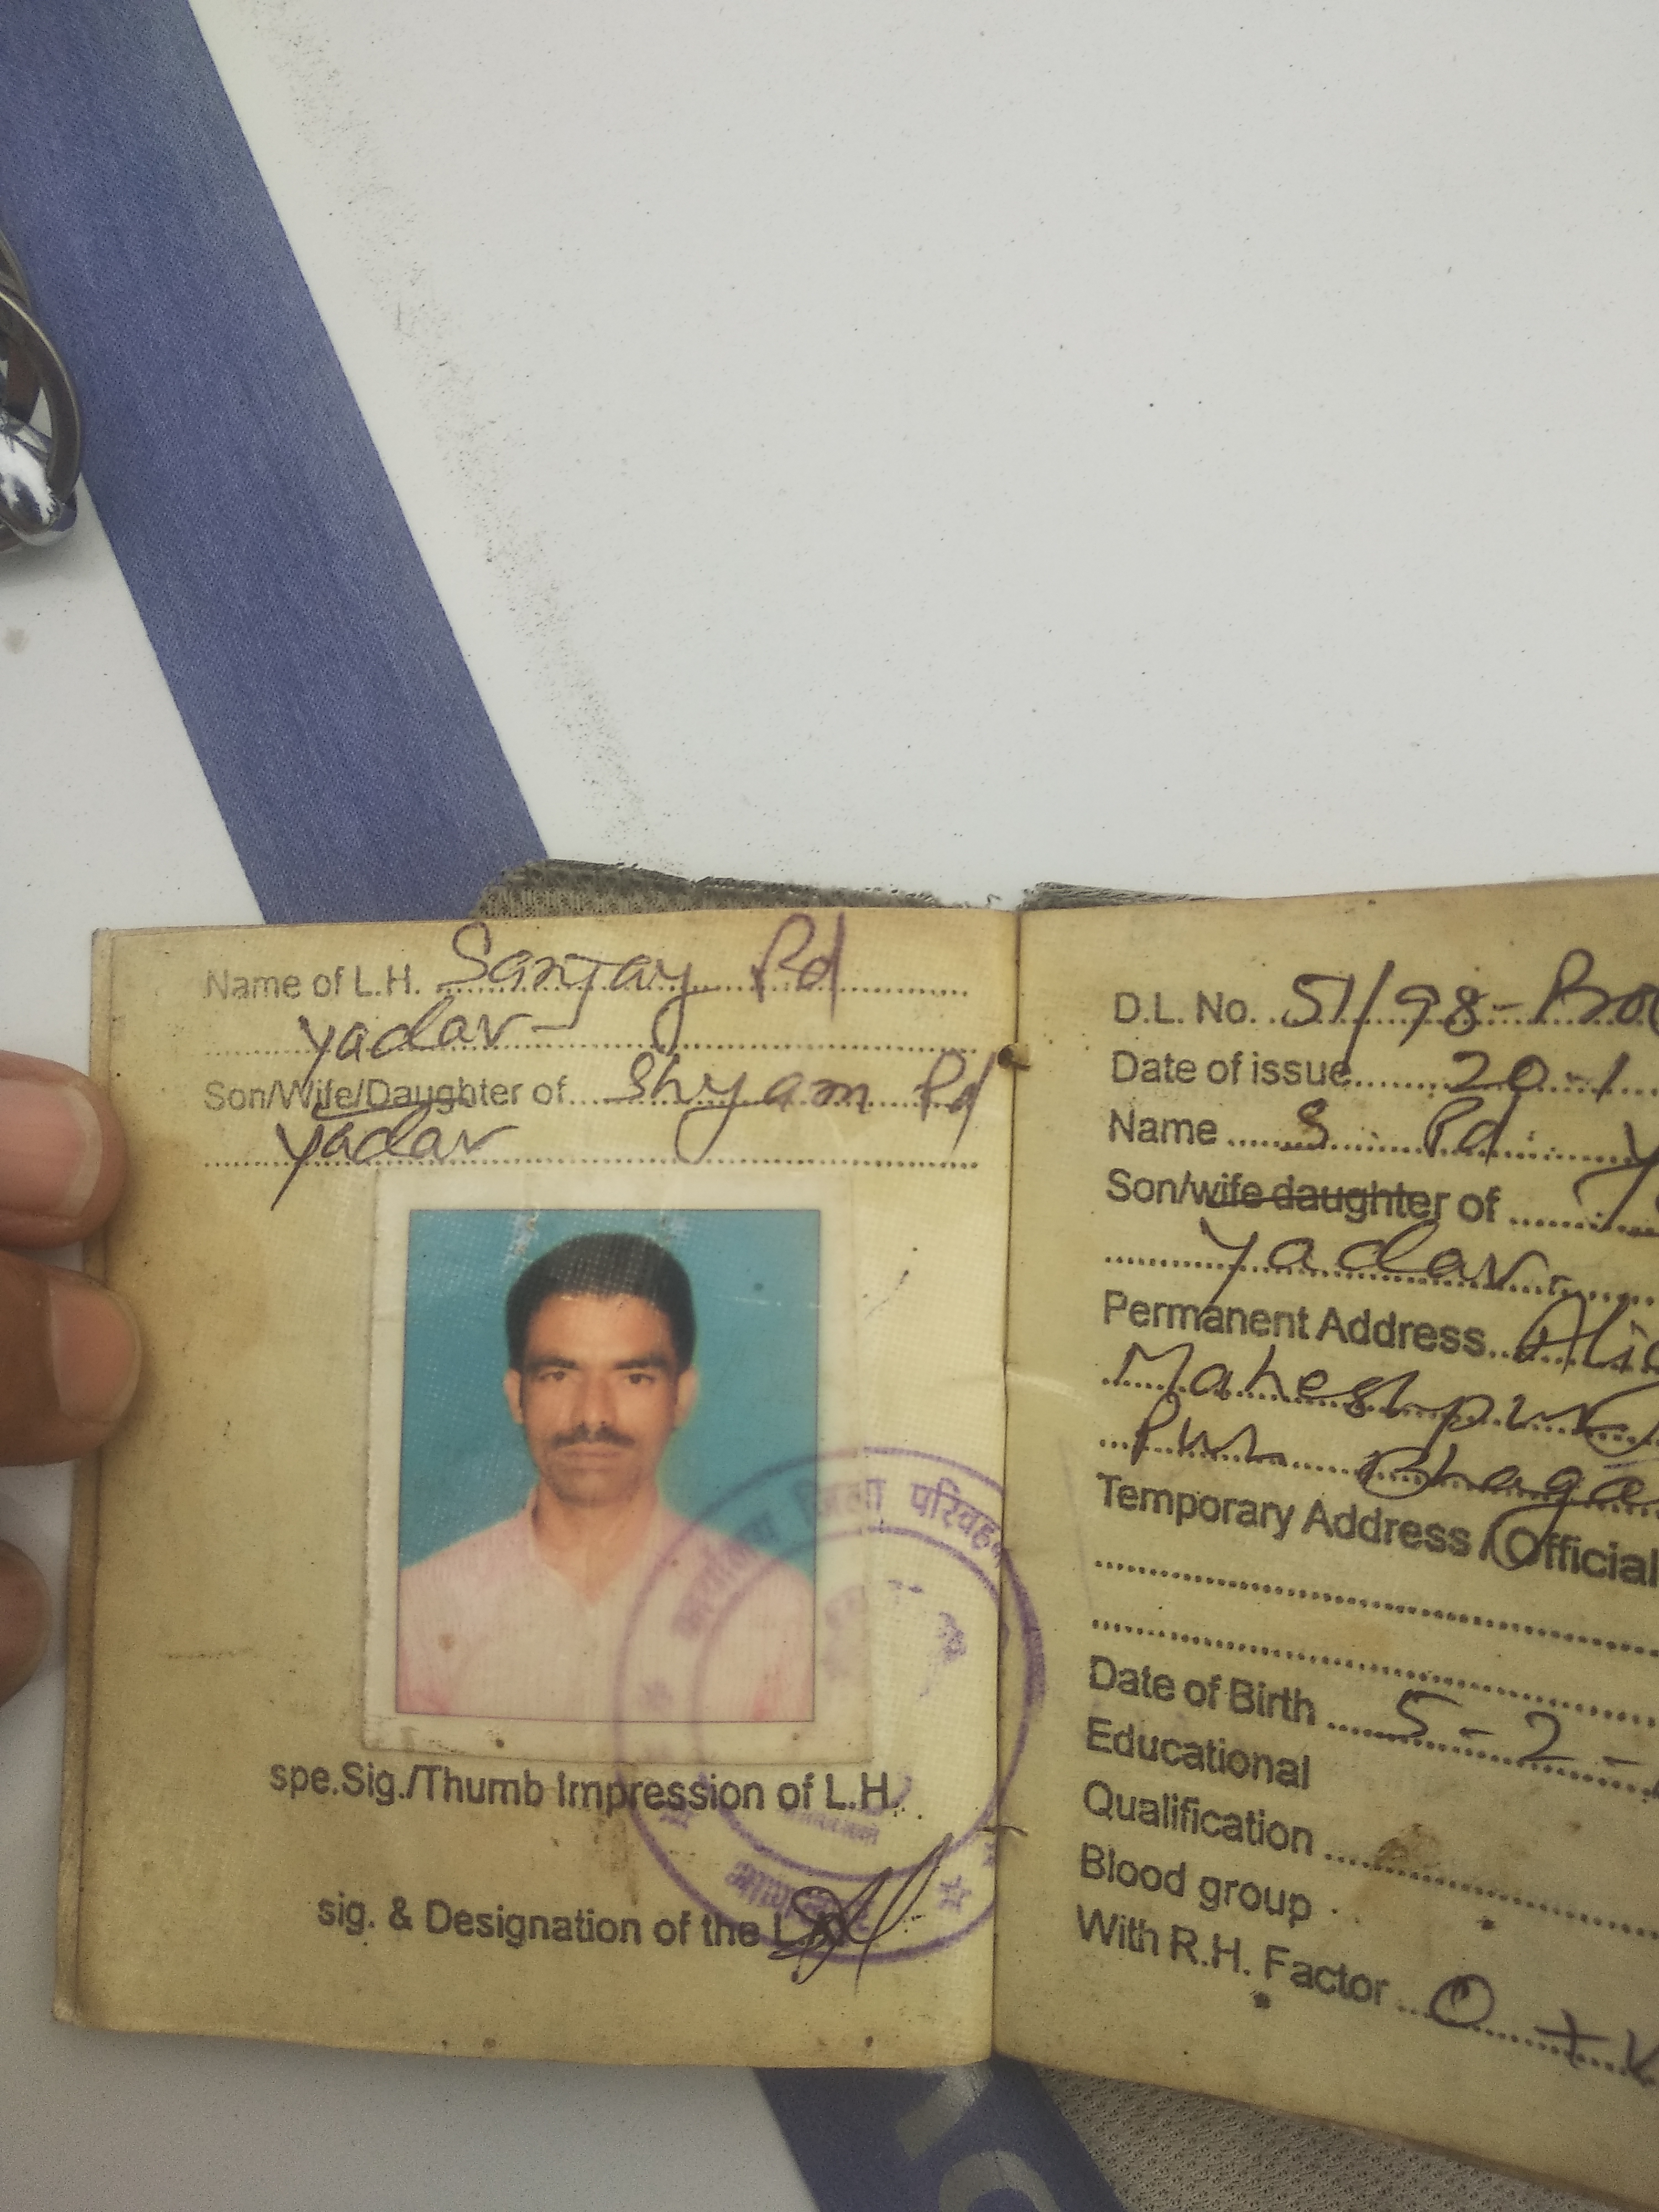 Name of L.H. Sanjay Pd
Yadav
Son/Wife/Daughter of Shyam Pd
Yadav
जिला परिवहन
spe.Sig./Thumb Impression of L.H.
sig. & Designation of the L.A.
D.L. No. 51/98-
Date of issue 20-1
Name S. Pd. Y
Son/wife daughter of
Yadav
Permanent Address
Maheshpur
Bhaga
Temporary Address / Official
Date of Birth 5-2-
Educational
Qualification
Blood group
With R.H. Factor O +v